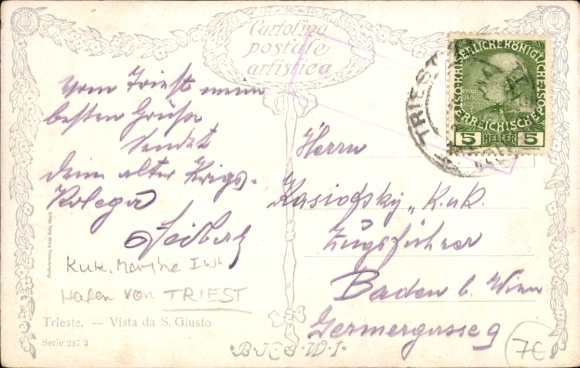 Cartolina
postale
artistica
Vom Triest meine
besten Grüße
sendet
dein alter Krigs-
Kolega
Seibert
K.u.K. Marine
Hafen von TRIEST
Trieste. — Vista da S. Giusto
Serie 287 3
TRIEST
KAISERLICHE KÖNIGLICHE ÖSTERREICHISCHE POST
5 HELLER 5
Herrn
K.u.K.
Zugsführer
Baden b. Wien
Germergasse 9
7€